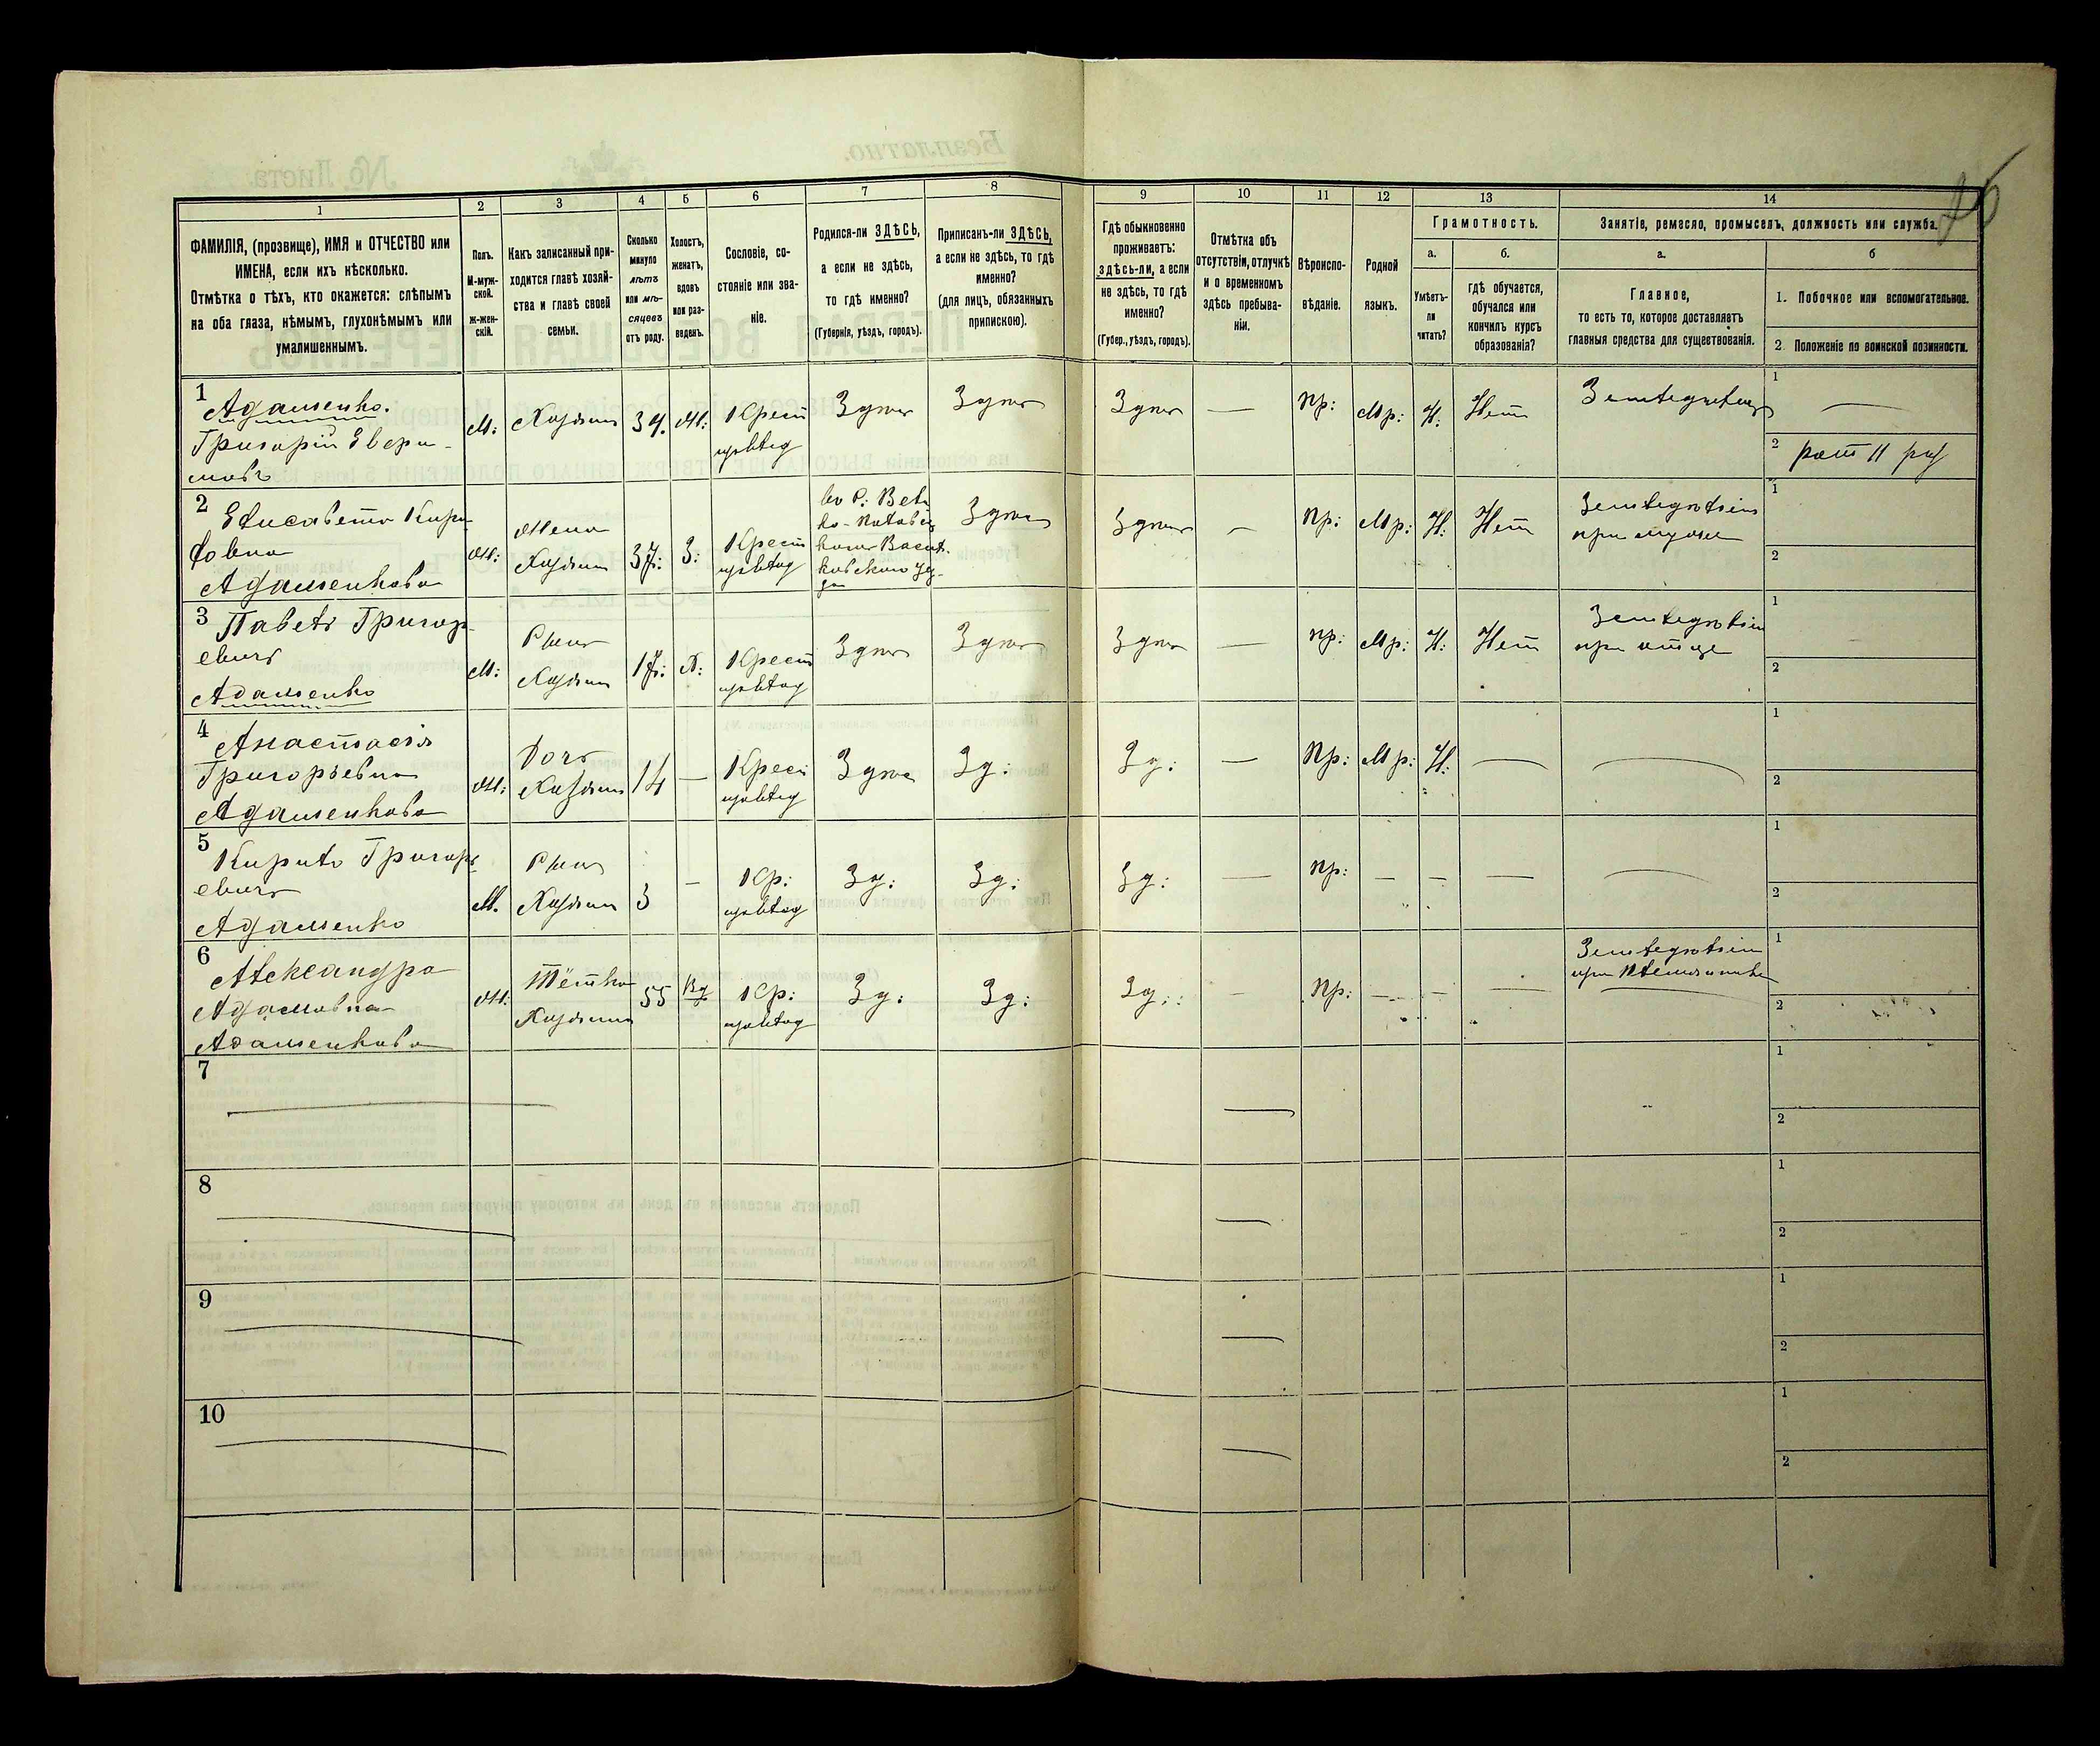 25
1
2
3
4
5
6
7
8
9
10
11
12
13
14
ФАМИЛІЯ, (прозвище), ИМЯ и ОТЧЕСТВО или
ИМЕНА, если ихъ нѣсколько.
Отмѣтка о тѣхъ, кто окажется: слѣпымъ
на оба глаза, нѣмымъ, глухонѣмымъ или
умалишеннымъ.
Полъ.
М-муж-
ской.
ж-жен-
скій.
Какъ записанный при-
ходится главѣ хозяй-
ства и главѣ своей
семьи.
Сколько
минуло
лѣтъ
или мѣ-
сяцевъ
отъ роду.
Холостъ,
женатъ,
вдовъ
или раз-
веденъ.
Сословіе, со-
стояніе или зва-
ніе.
Родился-ли ЗДѢСЬ,
а если не здѣсь,
то гдѣ именно?
(Губернія, уѣздъ, городъ).
Приписанъ-ли ЗДѢСЬ,
а если не здѣсь, то гдѣ
именно?
(для лицъ, обязанныхъ
припискою).
Гдѣ обыкновенно
проживаетъ:
здѣсь-ли, а если
не здѣсь, то гдѣ
именно?
(Губер., уѣздъ, городъ).
Отмѣтка объ
отсутствіи, отлучкѣ
и о временномъ
здѣсь пребыва-
ніи.
Вѣроиспо-
вѣданіе.
Родной
языкъ.
Грамотность.
а.
Умѣетъ-
ли
читать?
б.
гдѣ обучается,
обучался или
кончилъ курсъ
образованія?
Занятіе, ремесло, промыселъ, должность или служба.
а.
Главное,
то есть то, которое доставляетъ
главныя средства для существованія.
б
1. Побочное или вспомогательное.
2. Положеніе по воинской повинности.
1
Адаменко.
Григорій
М:
Хозяинъ
39.
Крест
Здѣсь
Здѣсь
Здѣсь
—
Пр:
Мр:
Н:
Нет
1
—
2
рат II раз
2
Елисавета
Адаменкова
Ж:
Жена
Хозяина
37:
З:
Крест
Здѣсь
Здѣсь
—
Пр:
Мр:
Н:
Нет
Земледѣліем
при муже
1
2
3
Павелъ Григор-
евичъ
Адаменко
М:
Сынъ
Хозяина
17:
Х:
Крест
Здѣсь
Здѣсь
Здѣсь
—
Пр:
Мр:
Н:
Нет
Земледѣліем
при отце
1
2
4
Анастасія
Григорьевна
Адаменкова
Ж:
Дочь
Хозяина
14
—
Крест
Здѣсь
Зд:
Зд:
—
Пр:
Мр:
Н:
—
—
1
2
5
Кирило Григорь
евичъ
Адаменко
М.
Сынъ
Хозяина
3
—
Кр:
Зд:
Зд:
Зд:
—
Пр:
—
—
—
—
1
2
6
Александра
Адамовна
Адаменкова
Ж:
Тётка
Хозяина
55
Вд
Кр:
Зд:
Зд:
Зд:
—
Пр:
—
—
—
Земледѣліем
при племяннике
1
2
7
—
—
1
2
8
—
—
1
2
9
—
—
1
2
10
—
—
1
2